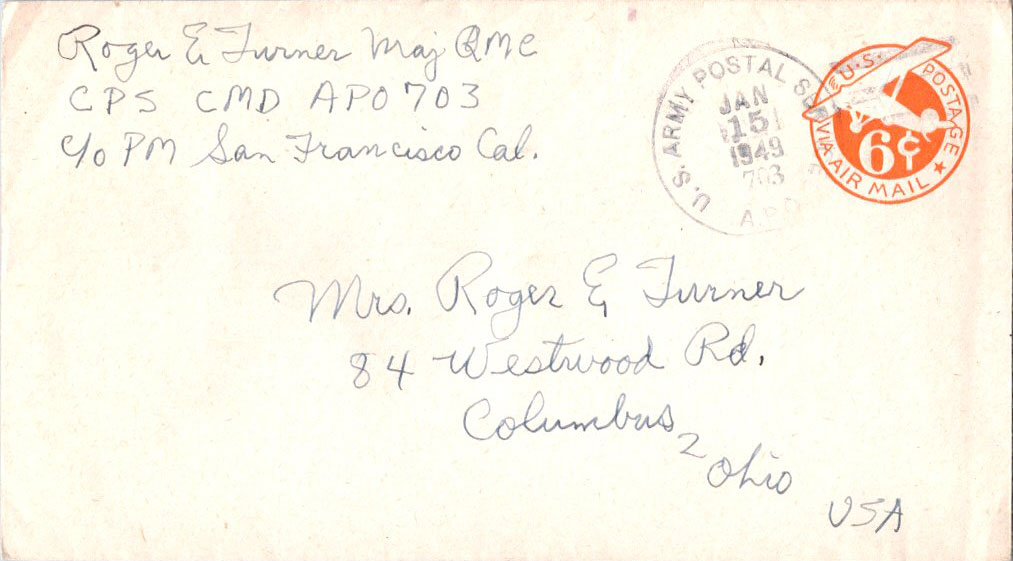 Roger E Turner Maj QMC
CPS CMD APO 703
c/o PM San Francisco Cal.
U.S. ARMY POSTAL
JAN
15
1949
703
APO
U.S. POSTAGE
6¢
VIA AIR MAIL
Mrs. Roger E Turner
84 Westwood Rd.
Columbus 2
Ohio
USA